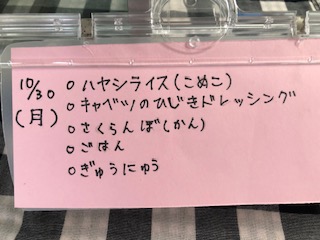 10/30 ○ ハヤシライス(こめこ)
(月) ○ キャベツのひじきドレッシング
○ さくらんぼ(かん)
○ ごはん
○ ぎゅうにゅう